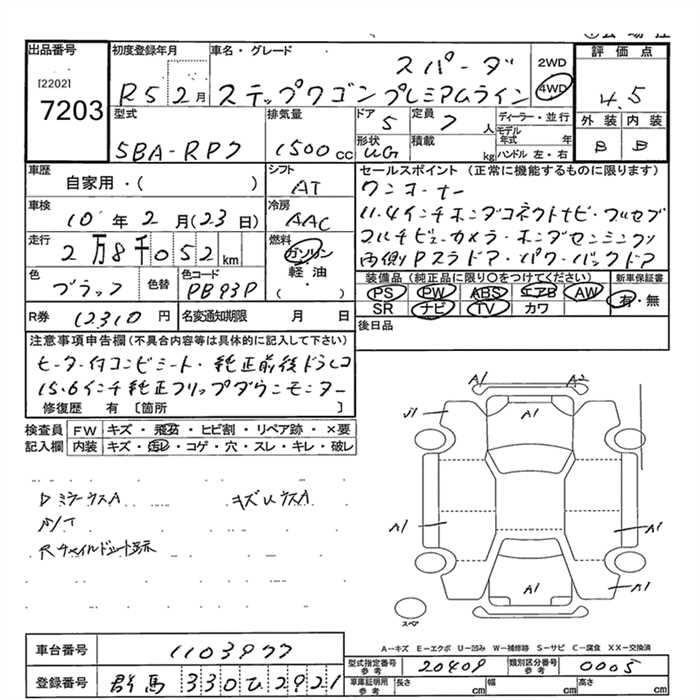 出品番号
[2202]
7203
初度登録年月
R5 2月
車名・グレード
スパーダ
ステップワゴンプレミアムライン
2WD
4WD
評価点
4.5
外装 内装
B B
型式
5BA-RP7
排気量
1500cc
ドア
5
定員
7人
形状
WG
積載
kg
ディーラー・並行
モデル年式 年
ハンドル 左・右
車歴
自家用・( )
シフト
AT
セールスポイント (正常に機能するものに限ります)
ワンオーナー
11.4インチホンダコネクトナビ・フルセグ
マルチビューカメラ・ホンダセンシング
両側Pスラドア・パワーバックドア
車検
10年2月(23日)
冷房
AAC
走行
2万8千052km
燃料
ガソリン
軽油
( )
色
ブラック
色替
色コード
PB93P
装備品 (純正品に限り○をつけてください)
PS PW ABS エアB AW
SR ナビ TV カワ
新車保証書
有・無
R券 12310円
名変通知期限 月 日
後日品
注意事項申告欄 (不具合内容等は具体的に記入して下さい)
ヒーター付コンビシート・純正前後ドラレコ
15.6インチ純正フリップダウンモニター
修復歴 有 [箇所 ]
検査員 FW キズ・飛石・ヒビ割・リペア跡・×要
記入欄 内装 キズ・汚レ・コゲ・穴・スレ・キレ・破レ
DミラーウスA キズUウスA
Rチャイルドシート跡
A1 A2
A1
A1
A1 A1
A1 A1
スペア
A-キズ E-エクボ U-凹み W-補修跡 S-サビ C-腐食 XX-交換済
車台番号 1103977
登録番号 群馬 330ひ2921
型式指定番号 参考 20409
類別区分番号 参考 0005
車庫証明用 参考
長さ cm
幅 cm
高さ cm